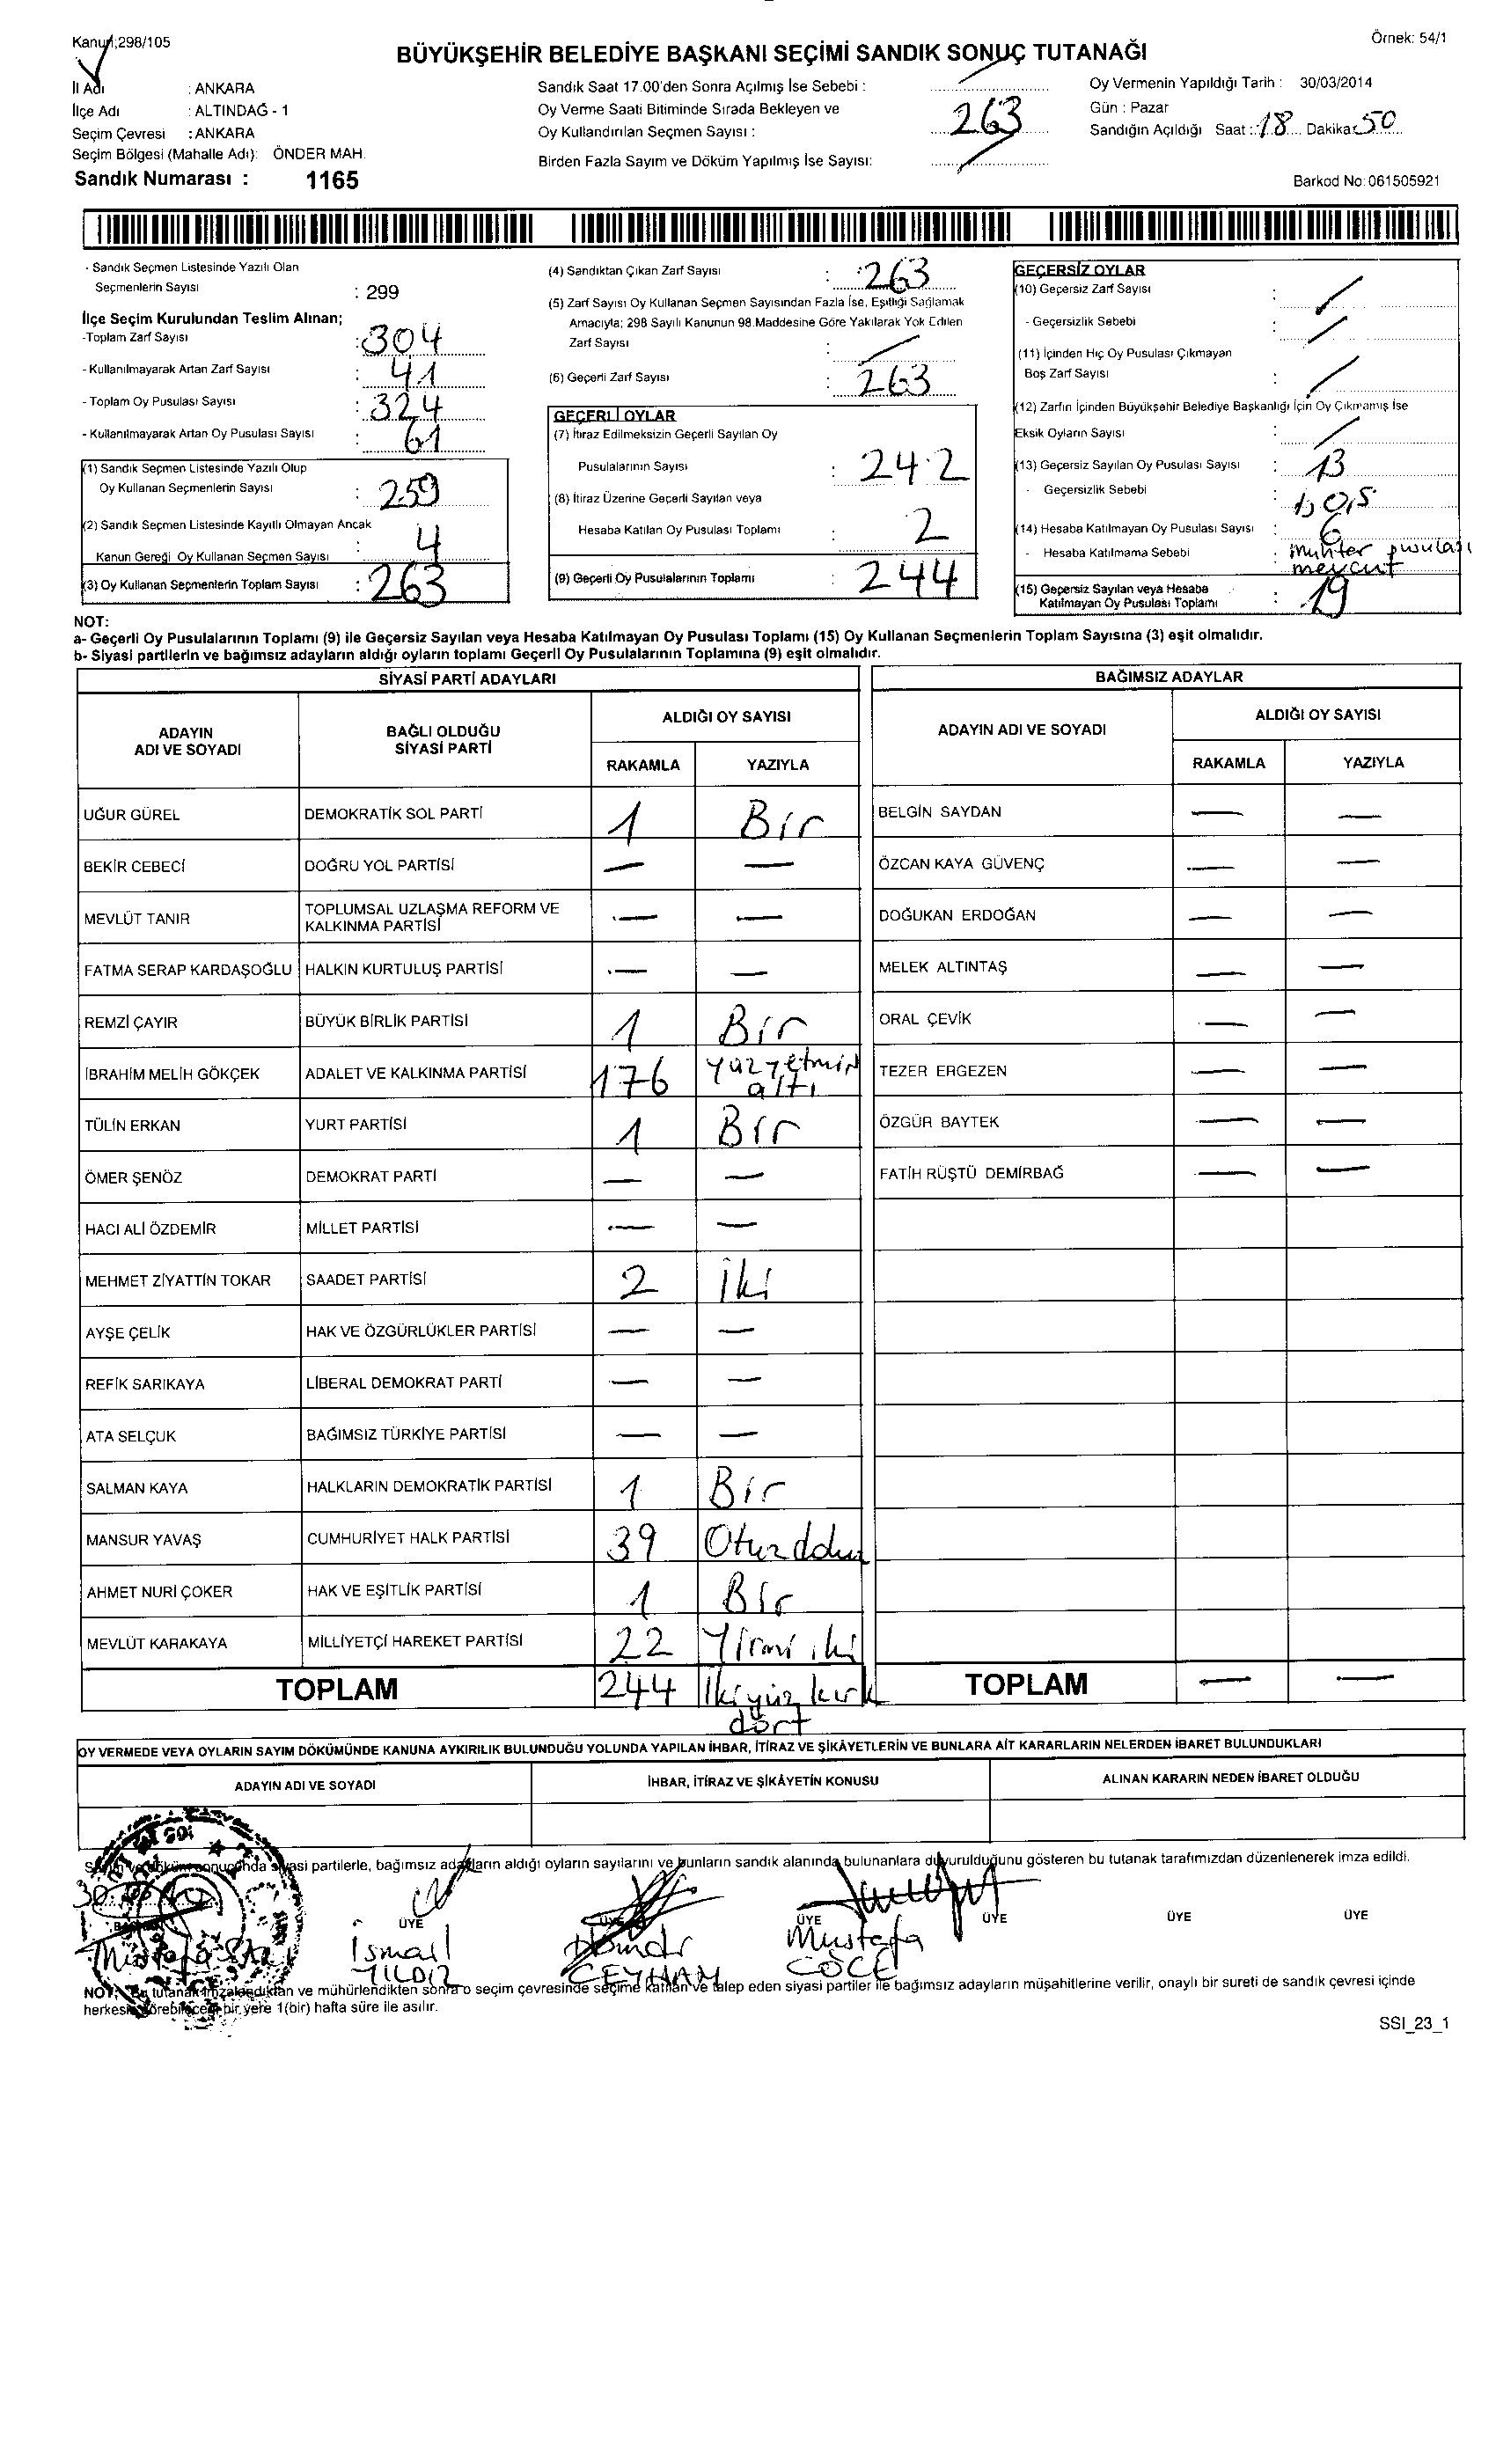 Kanun;298/105
Örnek: 54/1
BÜYÜKŞEHİR BELEDİYE BAŞKANI SEÇİMİ SANDIK SONUÇ TUTANAĞI
İl Adı : ANKARA
İlçe Adı : ALTINDAĞ - 1
Seçim Çevresi : ANKARA
Seçim Bölgesi (Mahalle Adı): ÖNDER MAH.
Sandık Numarası : 1165
Sandık Saat 17.00'den Sonra Açılmış İse Sebebi :
Oy Verme Saati Bitiminde Sırada Bekleyen ve
Oy Kullandırılan Seçmen Sayısı : 263
Birden Fazla Sayım ve Döküm Yapılmış İse Sayısı:
Oy Vermenin Yapıldığı Tarih : 30/03/2014
Gün : Pazar
Sandığın Açıldığı Saat : 18 Dakika: 50
Barkod No: 061505921
- Sandık Seçmen Listesinde Yazılı Olan
Seçmenlerin Sayısı : 299
İlçe Seçim Kurulundan Teslim Alınan;
-Toplam Zarf Sayısı : 304
- Kullanılmayarak Artan Zarf Sayısı : 41
- Toplam Oy Pusulası Sayısı : 324
- Kullanılmayarak Artan Oy Pusulası Sayısı : 61
(1) Sandık Seçmen Listesinde Yazılı Olup
Oy Kullanan Seçmenlerin Sayısı : 259
(2) Sandık Seçmen Listesinde Kayıtlı Olmayan Ancak
Kanun Gereği Oy Kullanan Seçmen Sayısı : 4
(3) Oy Kullanan Seçmenlerin Toplam Sayısı : 263
(4) Sandıktan Çıkan Zarf Sayısı : 263
(5) Zarf Sayısı Oy Kullanan Seçmen Sayısından Fazla İse, Eşitliği Sağlamak
Amacıyla; 298 Sayılı Kanunun 98.Maddesine Göre Yakılarak Yok Edilen
Zarf Sayısı :
(6) Geçerli Zarf Sayısı : 263
GEÇERLİ OYLAR
(7) İtiraz Edilmeksizin Geçerli Sayılan Oy
Pusulalarının Sayısı : 242
(8) İtiraz Üzerine Geçerli Sayılan veya
Hesaba Katılan Oy Pusulası Toplamı : 2
(9) Geçerli Oy Pusulalarının Toplamı : 244
GEÇERSİZ OYLAR
(10) Geçersiz Zarf Sayısı :
- Geçersizlik Sebebi :
(11) İçinden Hiç Oy Pusulası Çıkmayan
Boş Zarf Sayısı :
(12) Zarfın İçinden Büyükşehir Belediye Başkanlığı İçin Oy Çıkmamış İse
Eksik Oyların Sayısı :
(13) Geçersiz Sayılan Oy Pusulası Sayısı : 13
- Geçersizlik Sebebi :
(14) Hesaba Katılmayan Oy Pusulası Sayısı : 6
- Hesaba Katılmama Sebebi : muhter pusulası
mevcut
(15) Geçersiz Sayılan veya Hesaba
Katılmayan Oy Pusulası Toplamı : 19
NOT:
a- Geçerli Oy Pusulalarının Toplamı (9) ile Geçersiz Sayılan veya Hesaba Katılmayan Oy Pusulası Toplamı (15) Oy Kullanan Seçmenlerin Toplam Sayısına (3) eşit olmalıdır.
b- Siyasi partilerin ve bağımsız adayların aldığı oyların toplamı Geçerli Oy Pusulalarının Toplamına (9) eşit olmalıdır.
SİYASİ PARTİ ADAYLARI
ADAYIN
ADI VE SOYADI
BAĞLI OLDUĞU
SİYASİ PARTİ
ALDIĞI OY SAYISI
RAKAMLA YAZIYLA
UĞUR GÜREL DEMOKRATİK SOL PARTİ 1 Bir
BEKİR CEBECİ DOĞRU YOL PARTİSİ — —
MEVLÜT TANIR TOPLUMSAL UZLAŞMA REFORM VE
KALKINMA PARTİSİ — —
FATMA SERAP KARDAŞOĞLU HALKIN KURTULUŞ PARTİSİ — —
REMZİ ÇAYIR BÜYÜK BİRLİK PARTİSİ 1 Bir
İBRAHİM MELİH GÖKÇEK ADALET VE KALKINMA PARTİSİ 176 yüzyetmiş
altı
TÜLİN ERKAN YURT PARTİSİ 1 Bir
ÖMER ŞENÖZ DEMOKRAT PARTİ — —
HACI ALİ ÖZDEMİR MİLLET PARTİSİ — —
MEHMET ZİYATTİN TOKAR SAADET PARTİSİ 2 iki
AYŞE ÇELİK HAK VE ÖZGÜRLÜKLER PARTİSİ — —
REFİK SARIKAYA LİBERAL DEMOKRAT PARTİ — —
ATA SELÇUK BAĞIMSIZ TÜRKİYE PARTİSİ — —
SALMAN KAYA HALKLARIN DEMOKRATİK PARTİSİ 1 Bir
MANSUR YAVAŞ CUMHURİYET HALK PARTİSİ 39
AHMET NURİ ÇOKER HAK VE EŞİTLİK PARTİSİ 1 Bir
MEVLÜT KARAKAYA MİLLİYETÇİ HAREKET PARTİSİ 22 Yirmi iki
TOPLAM 244 İkiyüz kırk
dört
BAĞIMSIZ ADAYLAR
ADAYIN ADI VE SOYADI
ALDIĞI OY SAYISI
RAKAMLA YAZIYLA
BELGİN SAYDAN — —
ÖZCAN KAYA GÜVENÇ — —
DOĞUKAN ERDOĞAN — —
MELEK ALTINTAŞ — —
ORAL ÇEVİK — —
TEZER ERGEZEN — —
ÖZGÜR BAYTEK — —
FATİH RÜŞTÜ DEMİRBAĞ — —
TOPLAM — —
OY VERMEDE VEYA OYLARIN SAYIM DÖKÜMÜNDE KANUNA AYKIRILIK BULUNDUĞU YOLUNDA YAPILAN İHBAR, İTİRAZ VE ŞİKÂYETLERİN VE BUNLARA AİT KARARLARIN NELERDEN İBARET BULUNDUKLARI
ADAYIN ADI VE SOYADI
İHBAR, İTİRAZ VE ŞİKÂYETİN KONUSU
ALINAN KARARIN NEDEN İBARET OLDUĞU
Sayım ve döküm sonucunda siyasi partilerle, bağımsız adayların aldığı oyların sayılarını ve bunların sandık alanında bulunanlara duyurulduğunu gösteren bu tutanak tarafımızdan düzenlenerek imza edildi.
ÜYE ÜYE ÜYE ÜYE ÜYE ÜYE
Mustafa
İsmail
YILDIZ
CEYHAN
Mustafa
NOT: Bu tutanak imzalandıktan ve mühürlendikten sonra o seçim çevresinde seçime katılan ve talep eden siyasi partiler ile bağımsız adayların müşahitlerine verilir, onaylı bir sureti de sandık çevresi içinde
herkesin görebileceği bir yere 1(bir) hafta süre ile asılır.
SSI_23_1